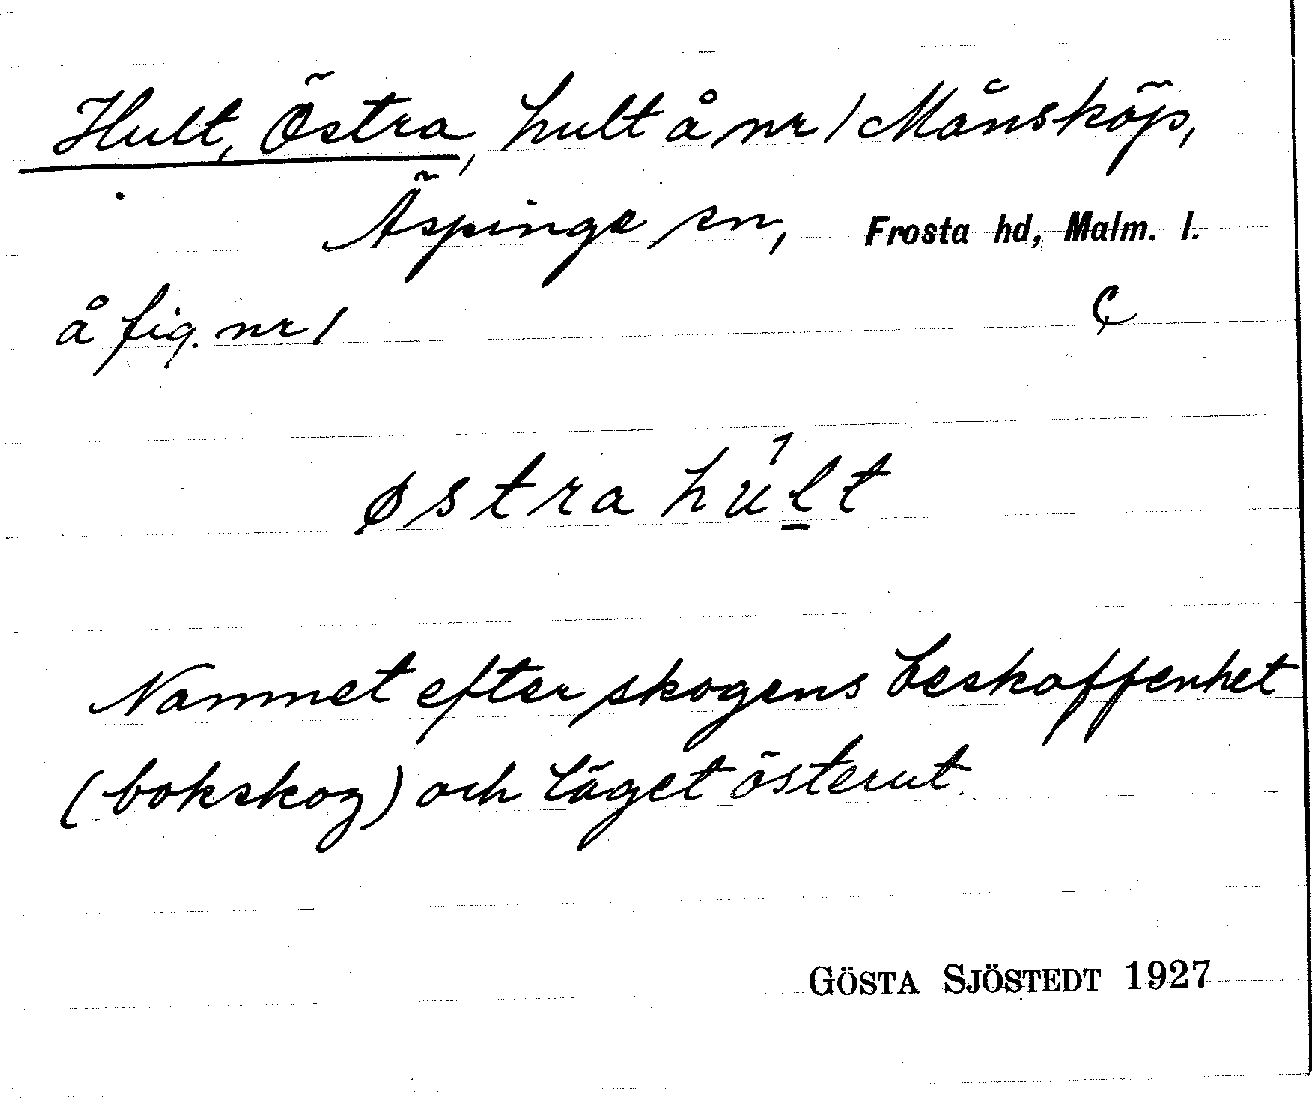 Hult, Östra, hult å nr 1 Månsköp,
Äspinge sn, Frosta hd, Malm. l.
å fig. nr 1
østra hult
Namnet efter skogens beskaffenhet
(bokskog) och läget österut.
GÖSTA SJÖSTEDT 1927